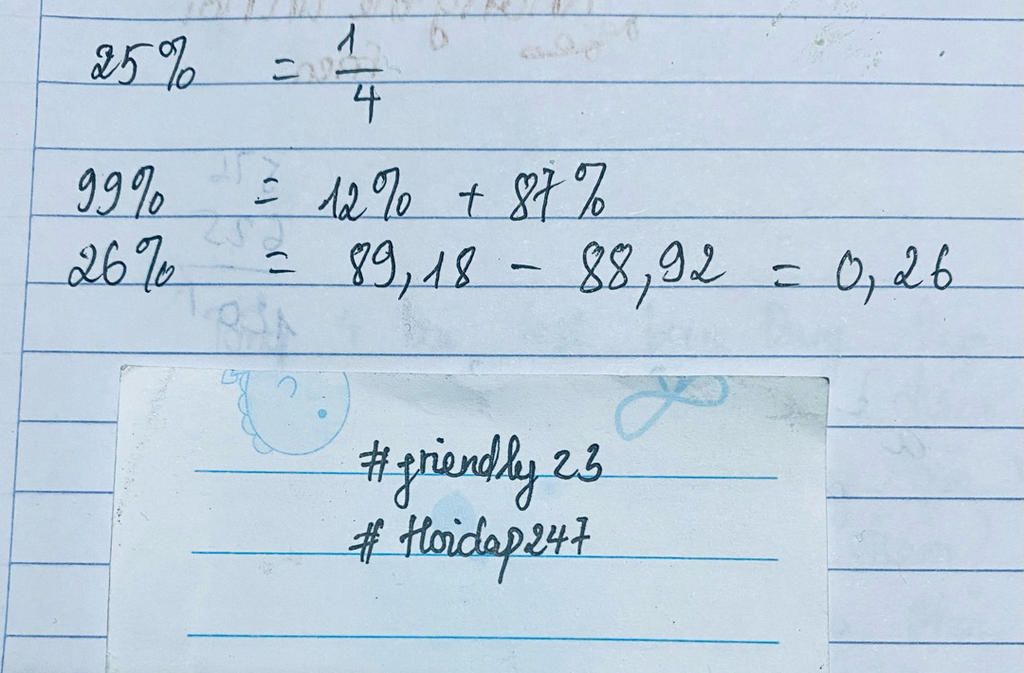 25% = 1/4
99% = 12% + 87%
26% = 89,18 - 88,92 = 0,26
#friendly23
#Hoidap247